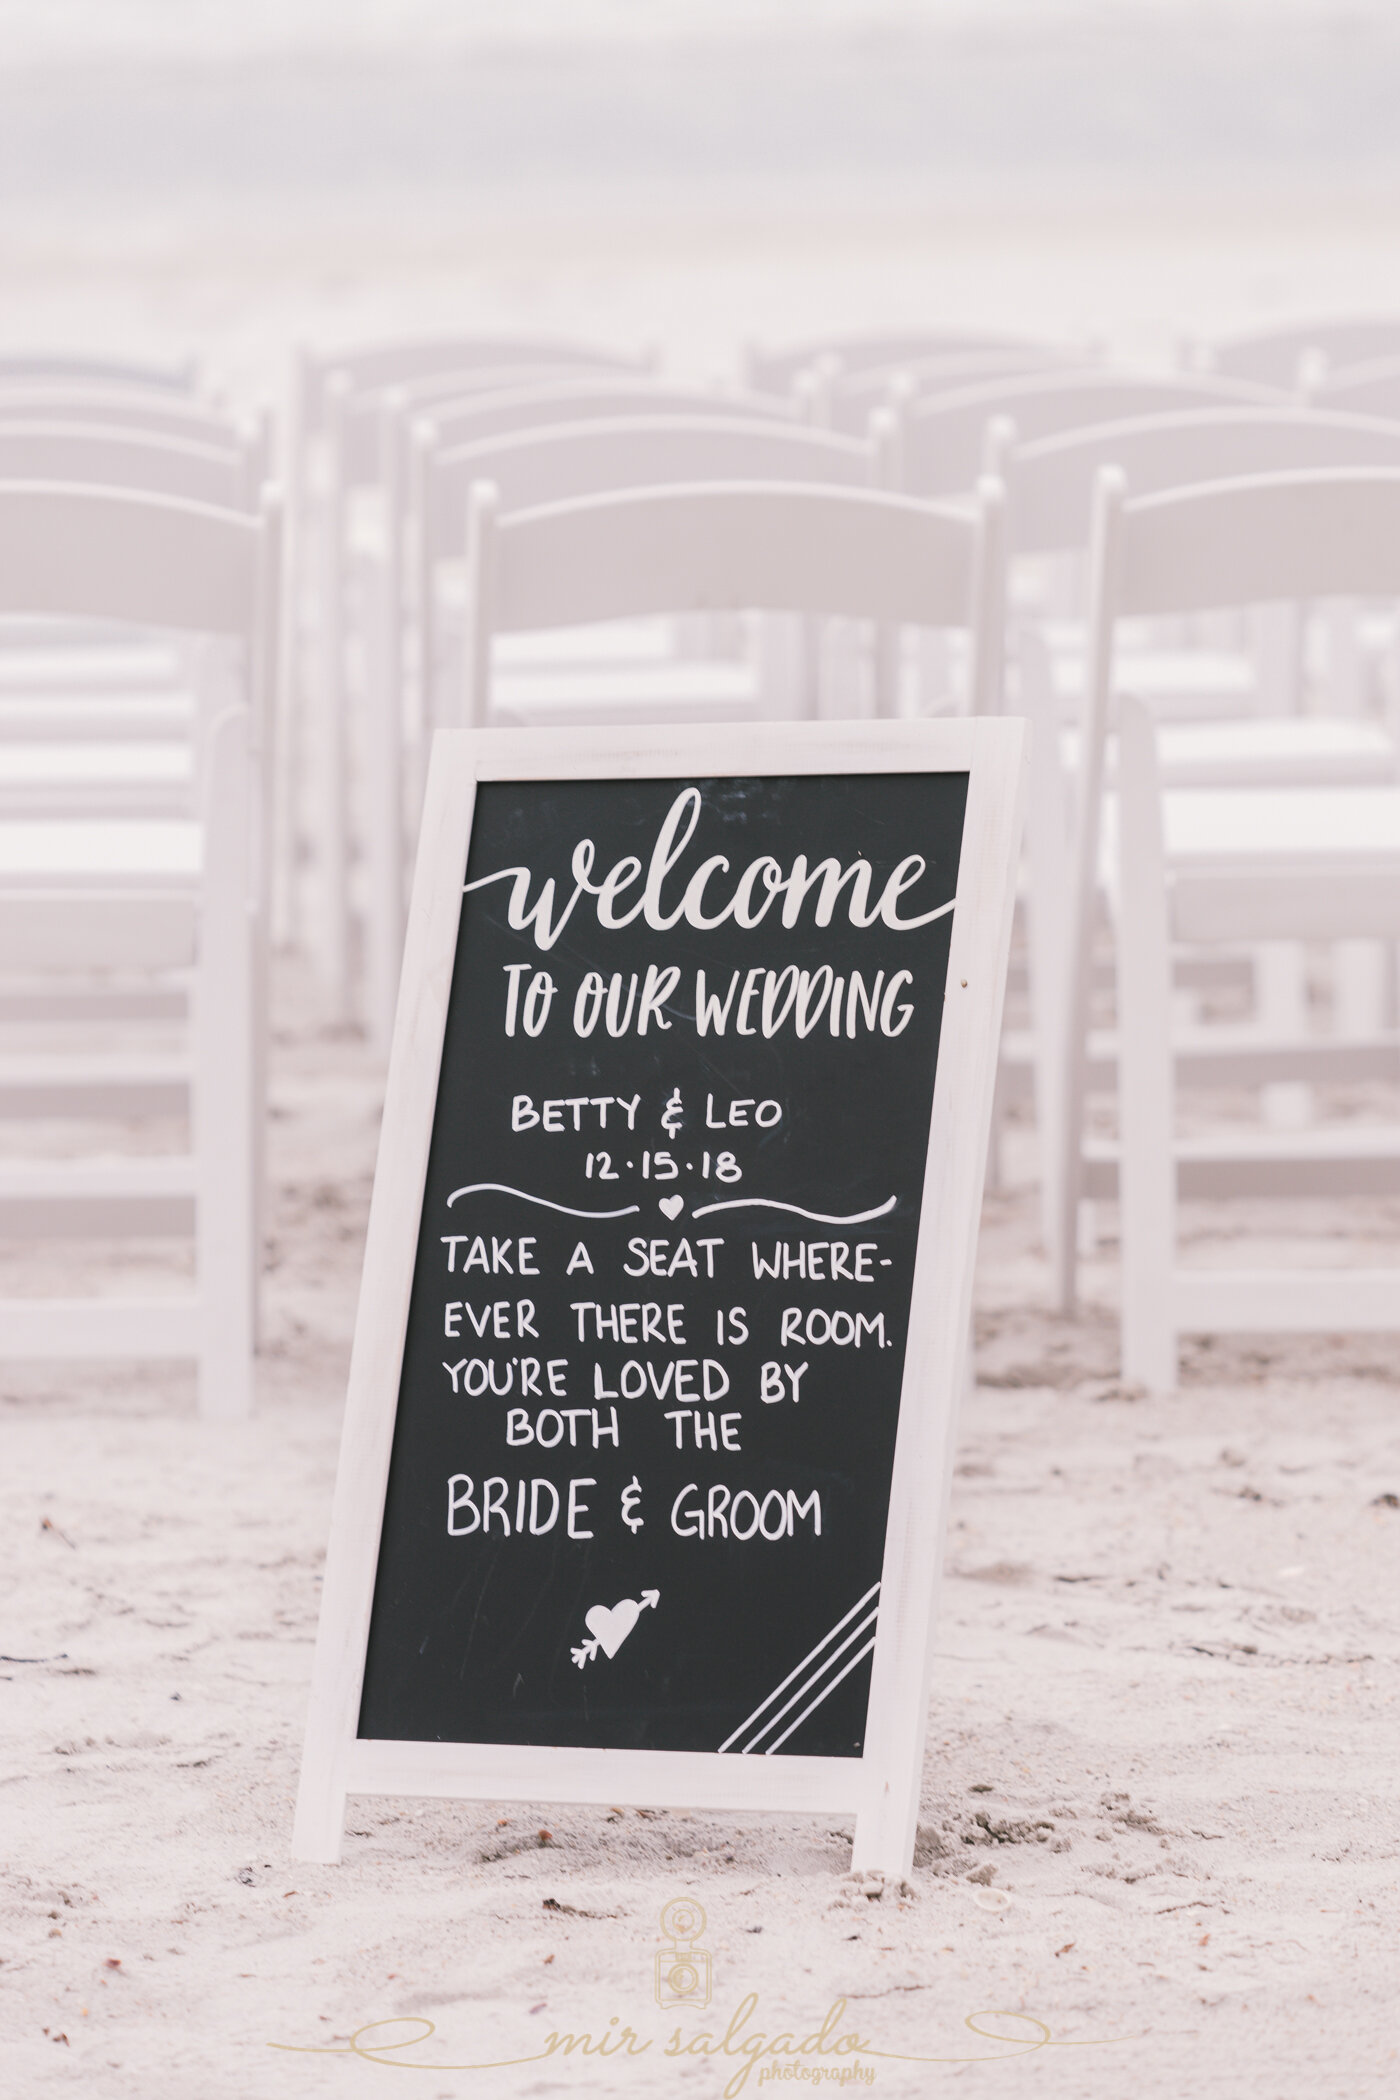 welcome
TO OUR WEDDING
BETTY & LEO
12·15·18
TAKE A SEAT WHERE-
EVER THERE IS ROOM.
YOU'RE LOVED BY
BOTH THE
BRIDE & GROOM
mir salgado
photography